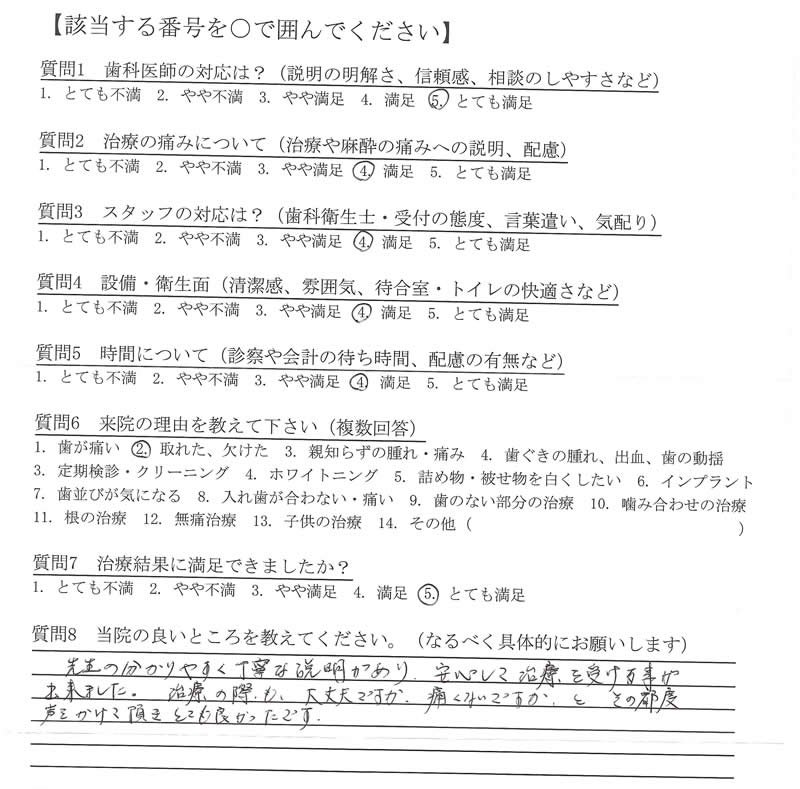 【該当する番号を〇で囲んでください】
質問1 歯科医師の対応は?(説明の明解さ、信頼感、相談のしやすさなど)
1. とても不満 2. やや不満 3. やや満足 4. 満足 5. とても満足
質問2 治療の痛みについて(治療や麻酔の痛みへの説明、配慮)
1. とても不満 2. やや不満 3. やや満足 4. 満足 5. とても満足
質問3 スタッフの対応は?(歯科衛生士・受付の態度、言葉遣い、気配り)
1. とても不満 2. やや不満 3. やや満足 4. 満足 5. とても満足
質問4 設備・衛生面(清潔感、雰囲気、待合室・トイレの快適さなど)
1. とても不満 2. やや不満 3. やや満足 4. 満足 5. とても満足
質問5 時間について(診察や会計の待ち時間、配慮の有無など)
1. とても不満 2. やや不満 3. やや満足 4. 満足 5. とても満足
質問6 来院の理由を教えて下さい(複数回答)
1. 歯が痛い 2. 取れた、欠けた 3. 親知らずの腫れ・痛み 4. 歯ぐきの腫れ、出血、歯の動揺
3. 定期検診・クリーニング 4. ホワイトニング 5. 詰め物・被せ物を白くしたい 6. インプラント
7. 歯並びが気になる 8. 入れ歯が合わない・痛い 9. 歯のない部分の治療 10. 噛み合わせの治療
11. 根の治療 12. 無痛治療 13. 子供の治療 14. その他( )
質問7 治療結果に満足できましたか?
1. とても不満 2. やや不満 3. やや満足 4. 満足 5. とても満足
質問8 当院の良いところを教えてください。(なるべく具体的にお願いします)
先生の分かりやすく丁寧な説明があり、安心して治療を受ける事が
出来ました。治療の際も、大丈夫ですか、痛くないですか、と その都度
声をかけて頂きとても良かったです。